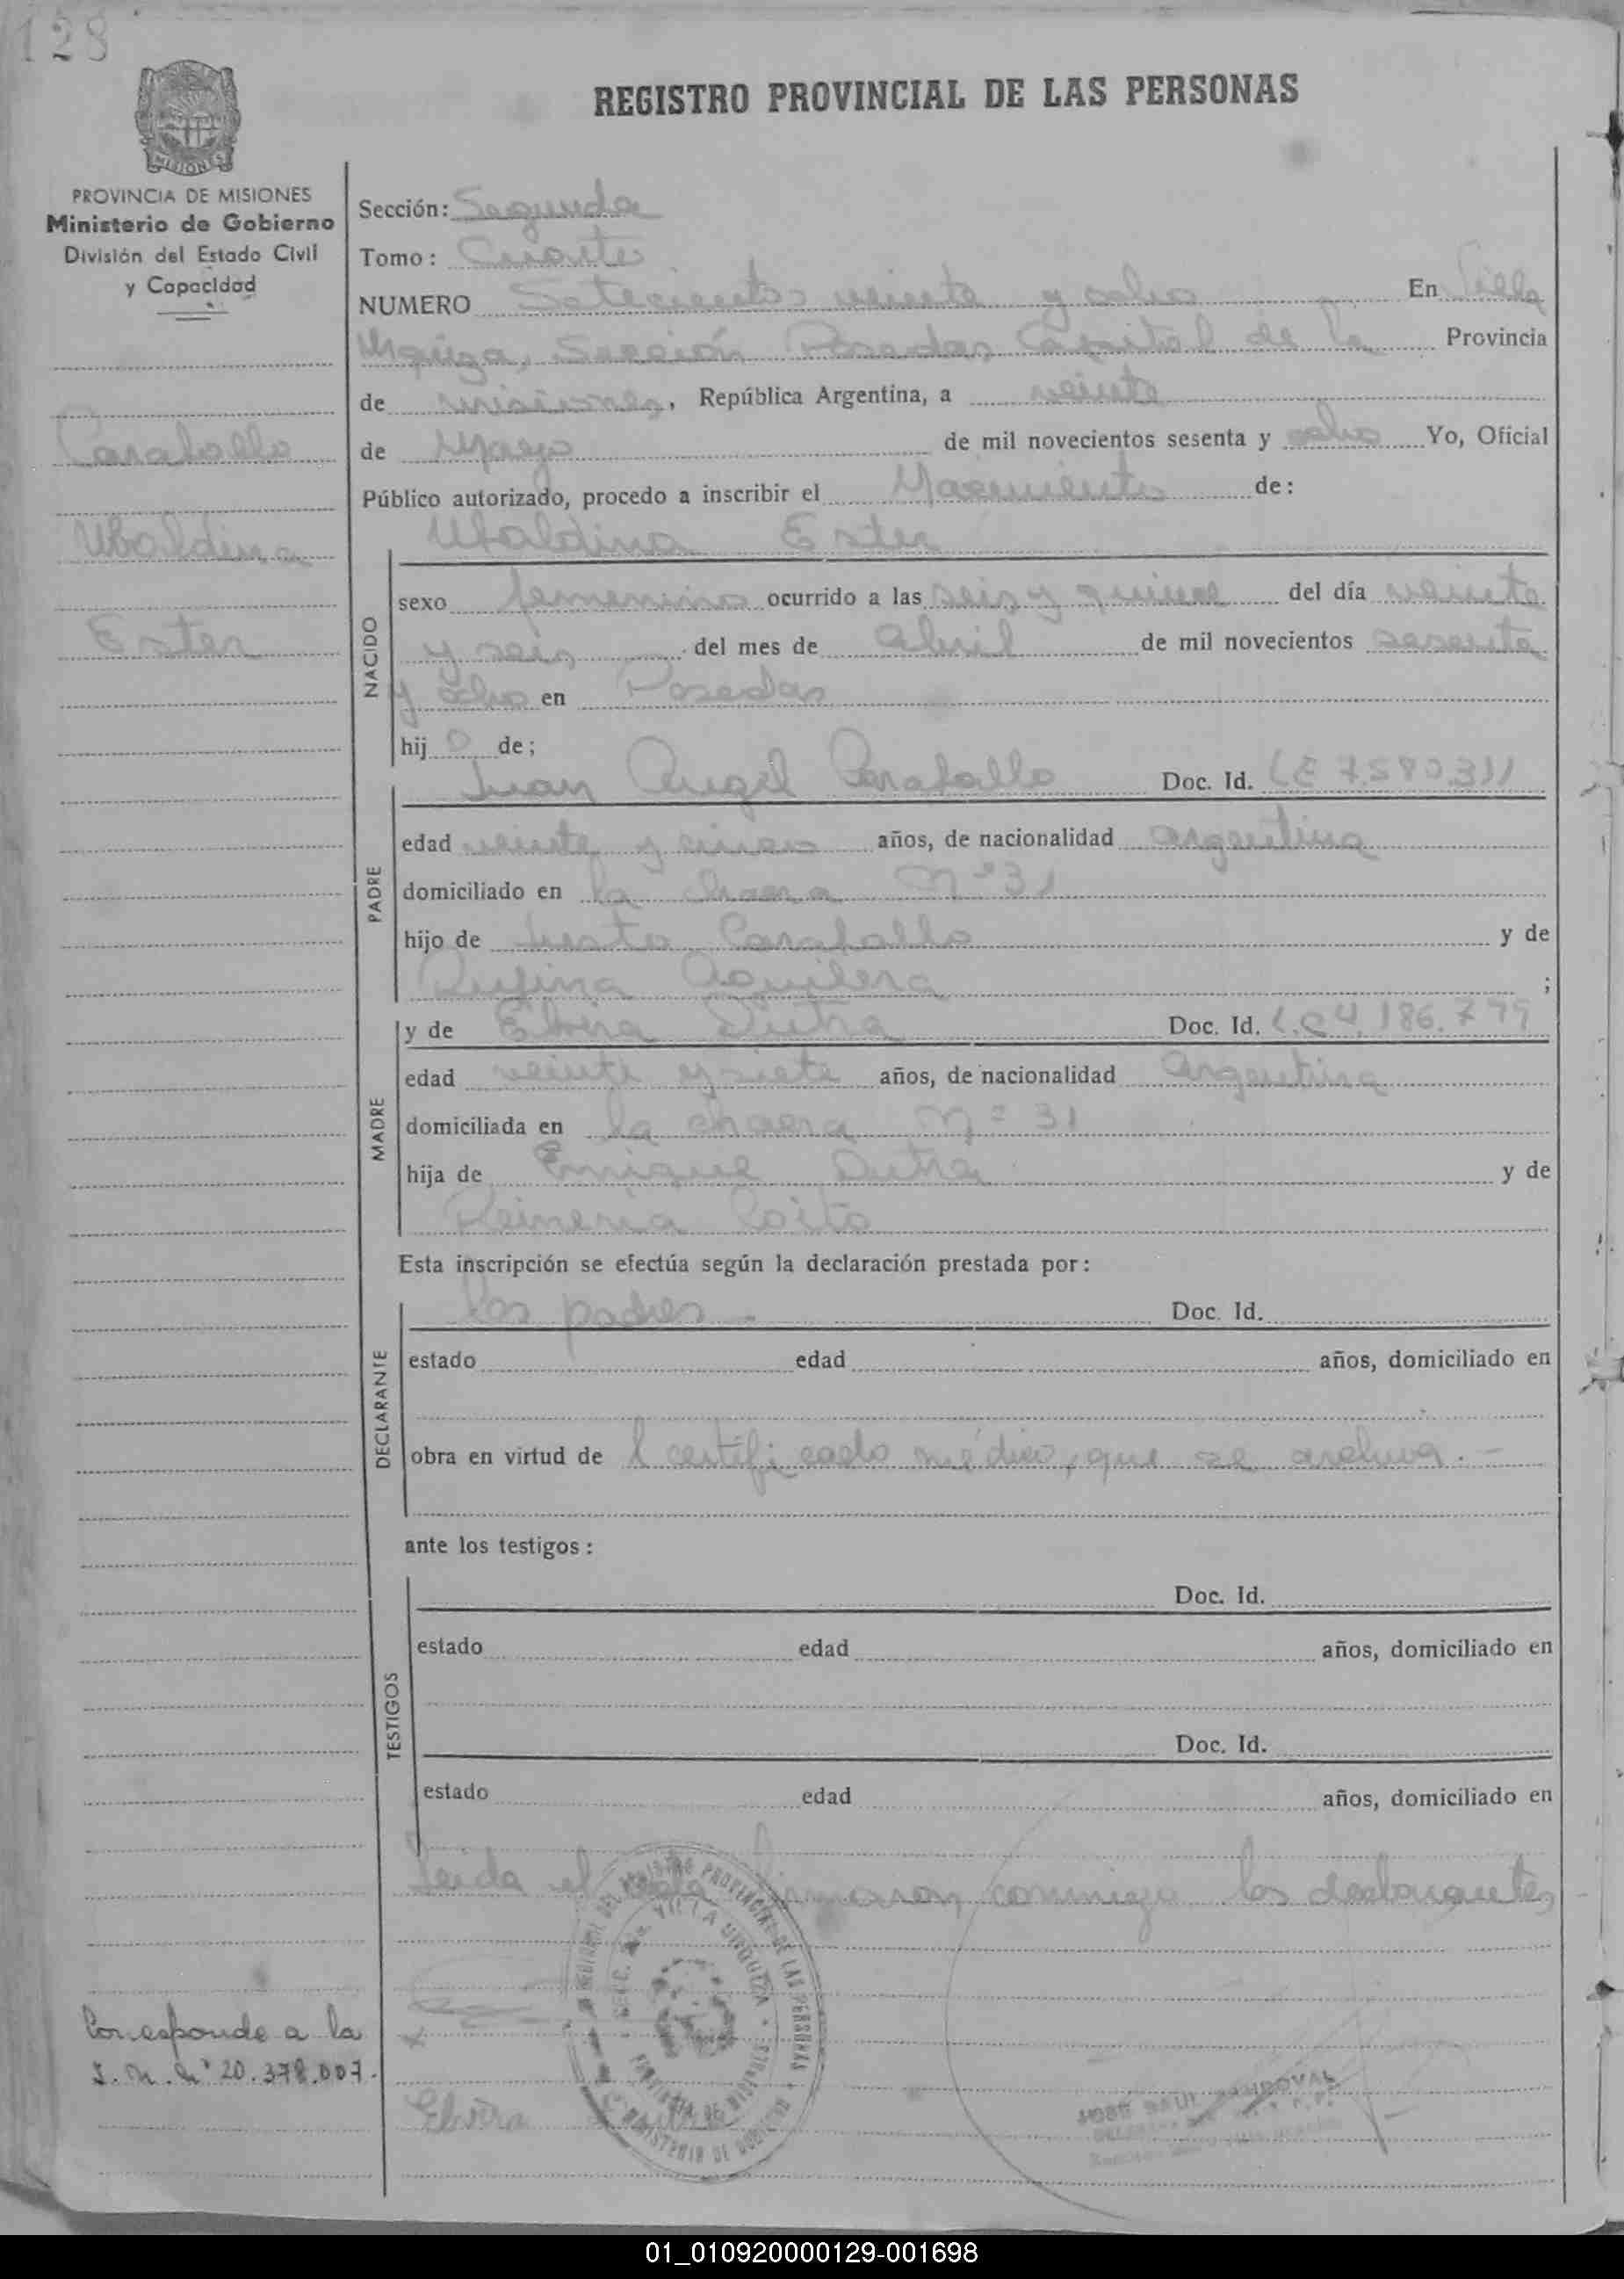 128
REGISTRO PROVINCIAL DE LAS PERSONAS
MISIONES
PROVINCIA DE MISIONES
Ministerio de Gobierno
División del Estado Civil
y Capacidad
Caraballo
Ubaldina
Ester
Sección: Segunda
Tomo: Cuarto
NUMERO Setecientos veinte y ocho En Villa
Urquiza, Sección Posadas Capital de la Provincia
de Misiones, República Argentina, a veinte
de Mayo de mil novecientos sesenta y ocho Yo, Oficial
Público autorizado, procedo a inscribir el Nacimiento de:
Ubaldina Ester
NACIDO
sexo femenino ocurrido a las seis y quince del día veinte
y seis del mes de Abril de mil novecientos sesenta
y ocho en Posadas
hij de;
Juan Angel Caraballo Doc. Id. LE 7.580.311
PADRE
edad veinte y cinco años, de nacionalidad argentina
domiciliado en la chacra Nº 31
hijo de Justo Caraballo y de
Rufina Aguilera ;
y de Elvira Dutra Doc. Id. L.C 4.186.779
MADRE
edad veinte y siete años, de nacionalidad Argentina
domiciliada en la chacra Nº 31
hija de Enrique Dutra y de
Reimeria
Esta inscripción se efectúa según la declaración prestada por:
los padres.- Doc. Id.
DECLARANTE
estado edad años, domiciliado en
obra en virtud de l certificado médico, que se archiva.-
ante los testigos:
Doc. Id.
TESTIGOS
estado edad años, domiciliado en
Doc. Id.
estado edad años, domiciliado en
Leida el acta firmaron conmigo los declarantes
REGISTRO PROVINCIAL DE LAS PERSONAS
VILLA URQUIZA
MINISTERIO DE GOBIERNO
Corresponde a la
I. N. Nº 20.378.007.
Elvira Dutra
JOSE RAUL SANDOVAL
01_010920000129-001698